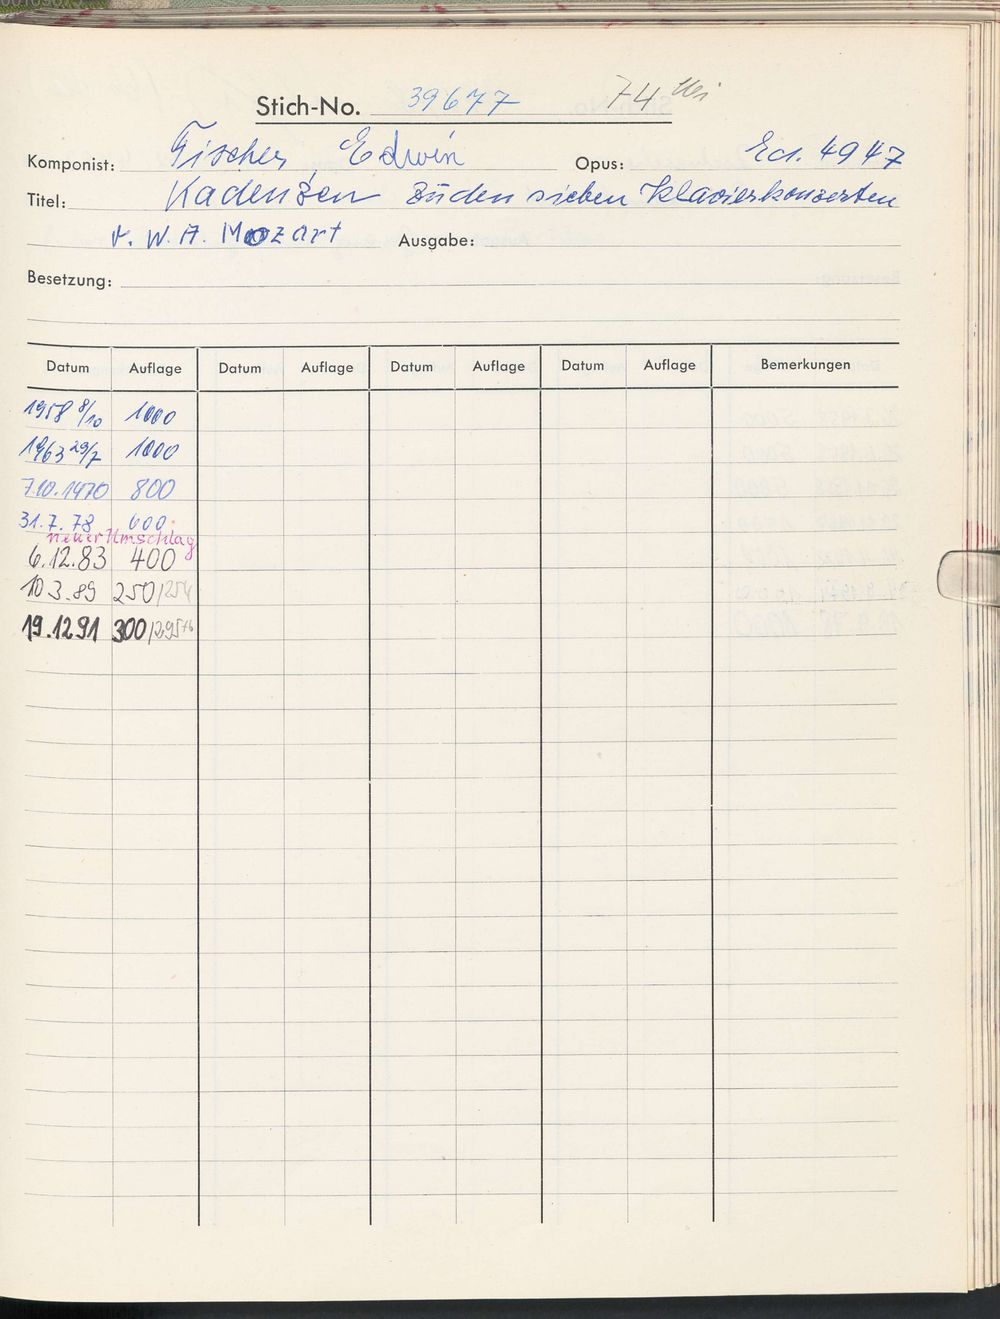 Stich-No. 39677 74
Komponist: Fischer, Edwin Opus: Ed. 4947
Titel: Kadenzen zu den sieben Klavierkonzerten
v. W. A. Mozart Ausgabe:
Besetzung:
Datum Auflage Datum Auflage Datum Auflage Datum Auflage Bemerkungen
1958 8/10 1000
1963 29/7 1000
7.10.1970 800
31.7.78 600
neuer Umschlag
6.12.83 400
10.3.89 250/254
19.12.91 300/295